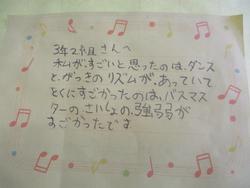 3年2組さんへ
私が、すごいと思ったのは、ダンス
と、がっきのリズムが、あっていて
とくにすごかったのは、バスマス
ターの、さいしょの、強弱が
すごかったです